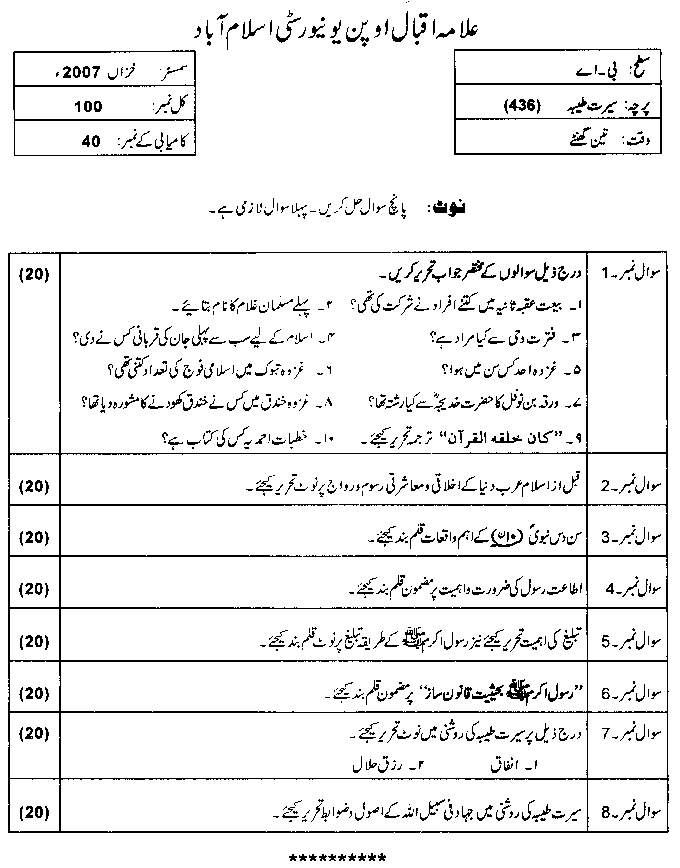 علامہ اقبال اوپن یونیورسٹی اسلام آباد
سطح: بی۔اے
پرچہ: سیرت طیبہ (436)
وقت: تین گھنٹے
سمسٹر: خزاں 2007ء
کل نمبر: 100
کامیابی کے نمبر: 40
نوٹ: پانچ سوال حل کریں۔ پہلا سوال لازمی ہے۔
سوال نمبر۔1 درج ذیل سوالوں کے مختصر جواب تحریر کریں۔ (20)
۱۔ بیعت عقبہ ثانیہ میں کتنے افراد نے شرکت کی تھی؟ ۲۔ پہلے مسلمان غلام کا نام بتائیے۔
۳۔ فترت وحی سے کیا مراد ہے؟ ۴۔ اسلام کے لیے سب سے پہلی جان کی قربانی کس نے دی؟
۵۔ غزوہ احد کس سن میں ہوا؟ ۶۔ غزوہ تبوک میں اسلامی فوج کی تعداد کتنی تھی؟
۷۔ ورقہ بن نوفل کا حضرت خدیجہؓ سے کیا رشتہ تھا؟ ۸۔ غزوہ خندق میں کس نے خندق کھودنے کا مشورہ دیا تھا؟
۹۔ "کان خلقه القرآن" ترجمہ تحریر کیجئے۔ ۱۰۔ خطبات احمدیہ کس کی کتاب ہے؟
سوال نمبر۔2 قبل از اسلام عرب دنیا کے اخلاقی و معاشرتی رسوم و رواج پر نوٹ تحریر کیجئے۔ (20)
سوال نمبر۔3 سن دس نبویؐ (۱۰) کے اہم واقعات قلم بند کیجئے۔ (20)
سوال نمبر۔4 اطاعت رسول کی ضرورت و اہمیت پر مضمون قلم بند کیجئے۔ (20)
سوال نمبر۔5 تبلیغ کی اہمیت تحریر کیجئے نیز رسول اکرم ﷺ کے طریقہ تبلیغ پر نوٹ قلم بند کیجئے۔ (20)
سوال نمبر۔6 "رسول اکرم ﷺ بحیثیت قانون ساز" پر مضمون قلم بند کیجئے۔ (20)
سوال نمبر۔7 درج ذیل پر سیرت طیبہ کی روشنی میں نوٹ تحریر کیجئے۔ (20)
۱۔ انفاق ۲۔ رزق حلال
سوال نمبر۔8 سیرت طیبہ کی روشنی میں جہاد فی سبیل اللہ کے اصول و ضوابط تحریر کیجئے۔ (20)
**********